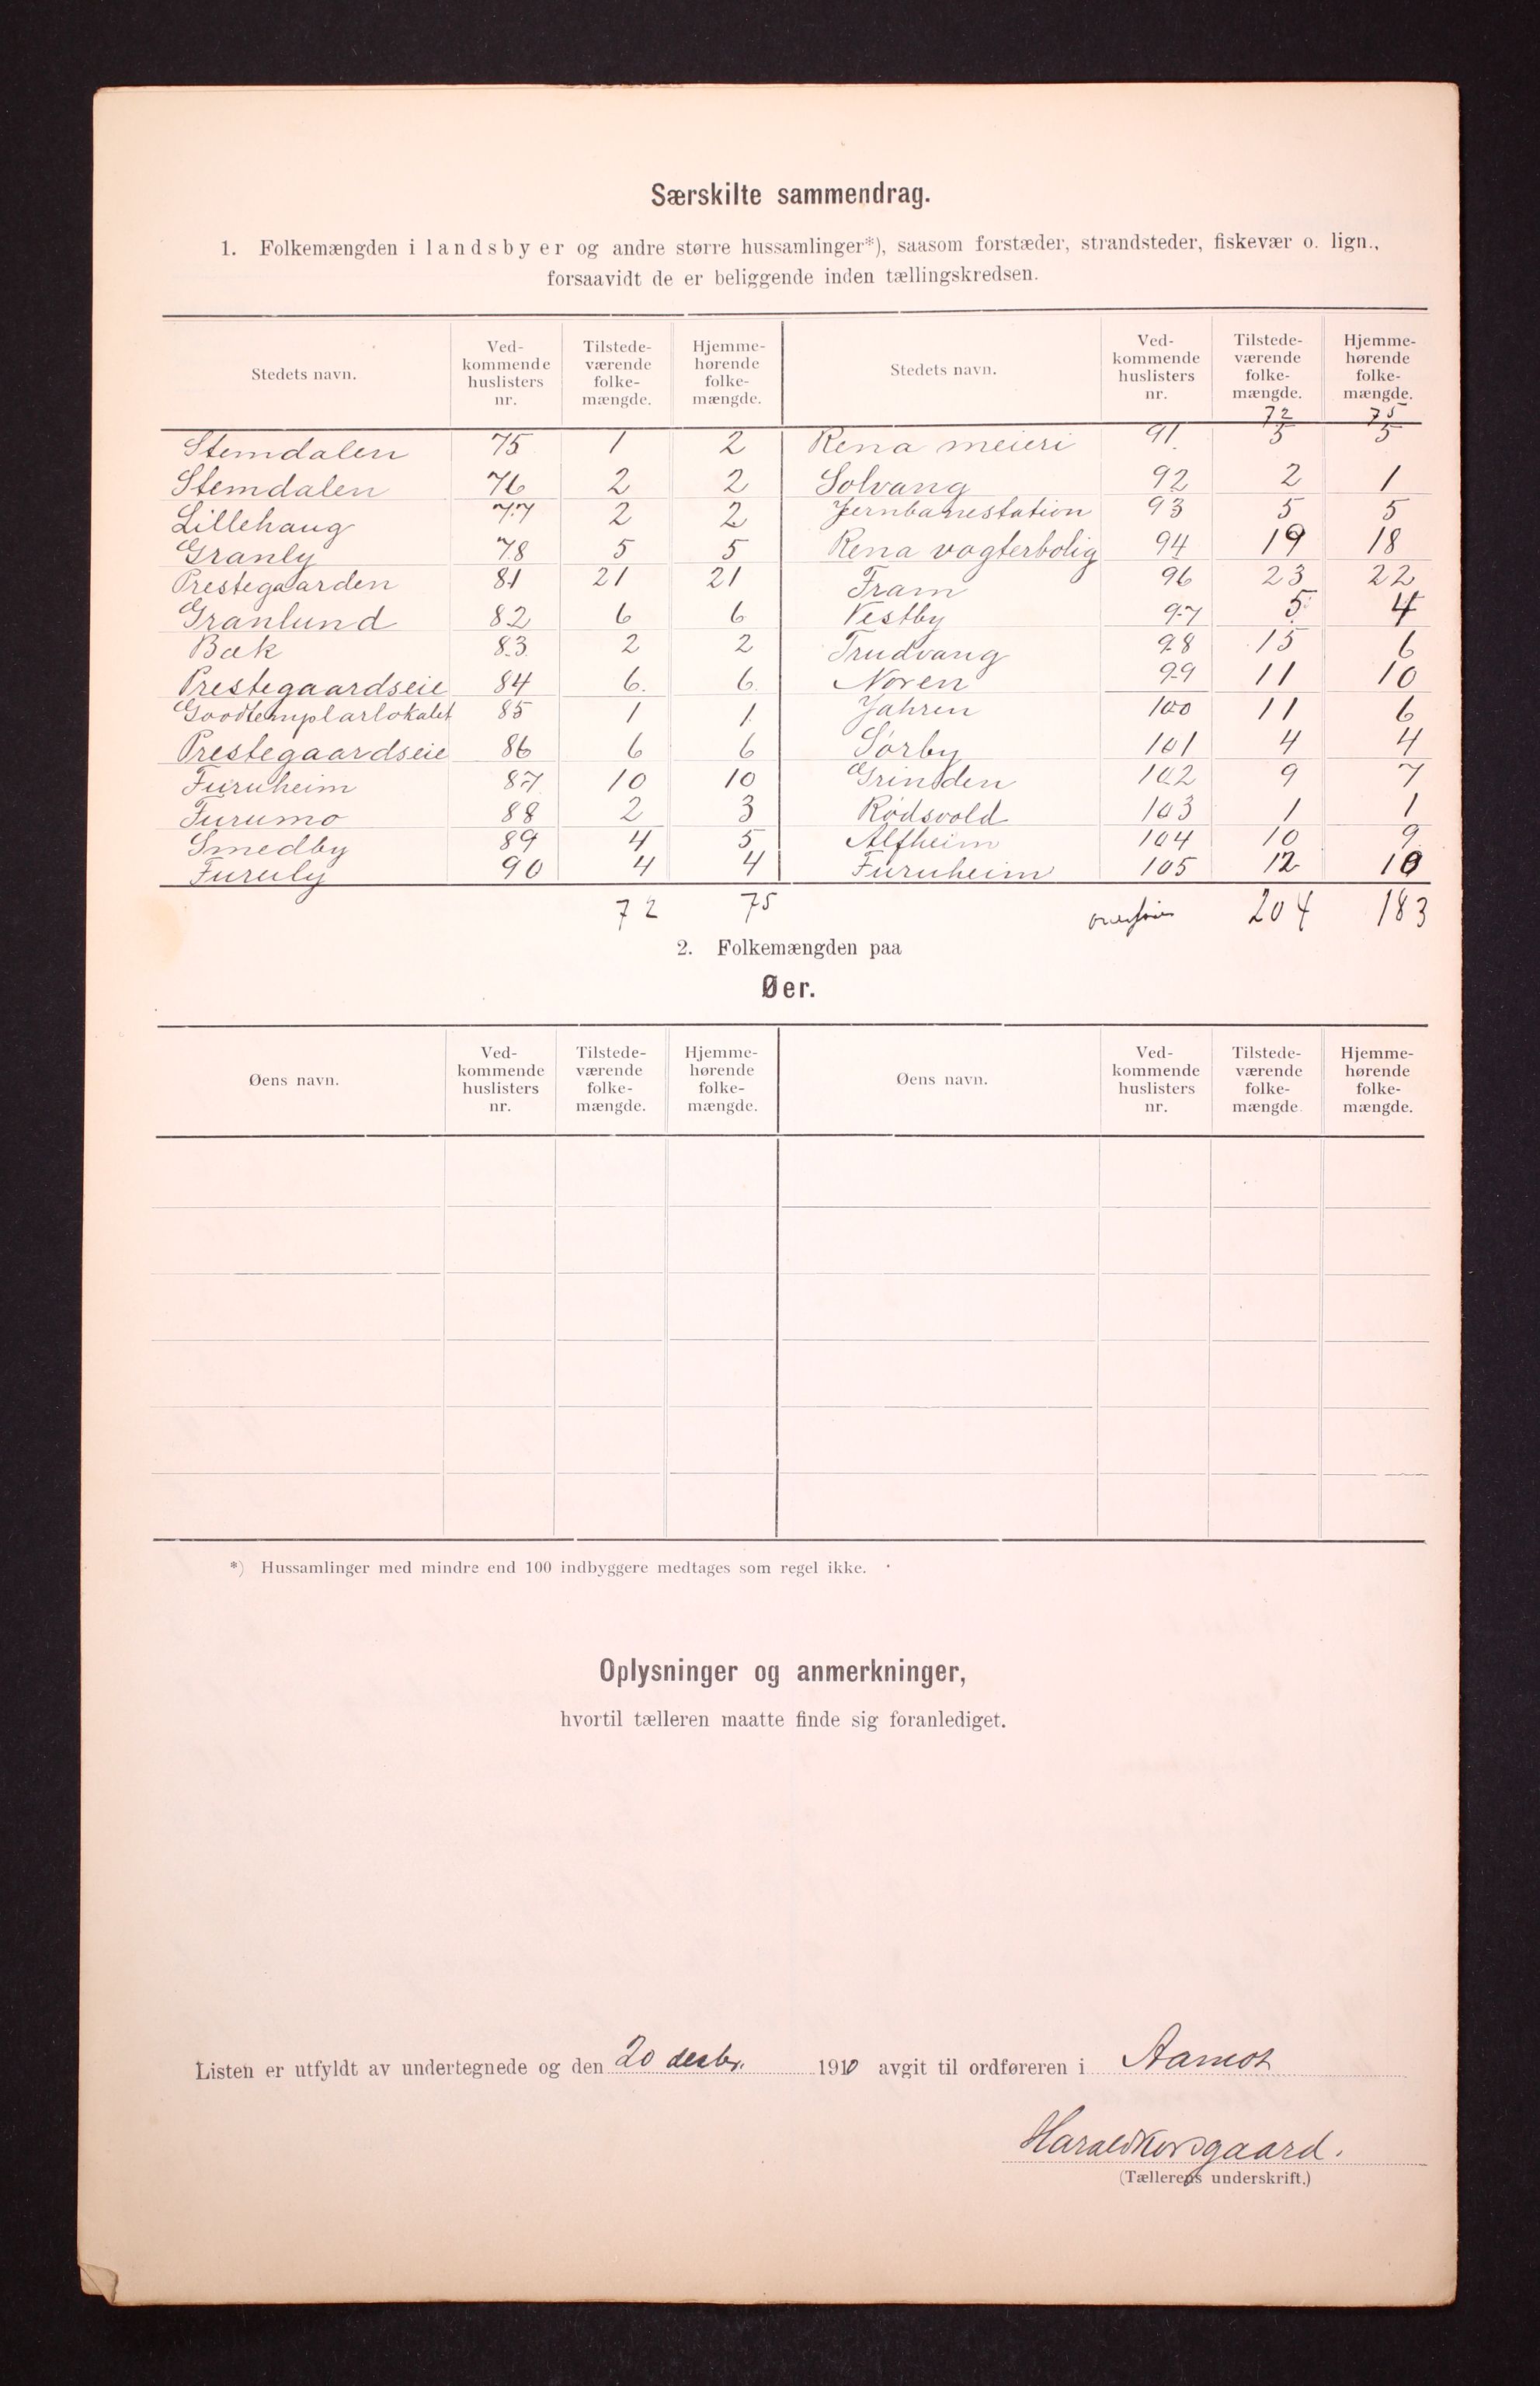 Særskilte sammendrag.
1. Folkemængden i landsbyer og andre større hussamlinger*), saasom forstæder, strandsteder, fiskevær o. lign.,
forsaavidt de er beliggende inden tællingskredsen.
Stedets navn. Ved-kommende huslisters nr. Tilstede-værende folke-mængde. Hjemme-hørende folke-mængde. Stedets navn. Ved-kommende huslisters nr. Tilstede-værende folke-mængde. Hjemme-hørende folke-mængde.
72 75
Stemdalen 75 1 2 Rena meieri 91 5 5
Stemdalen 76 2 2 Solvang 92 2 1
Lillehaug 77 2 2 Jernbanestation 93 5 5
Granly 78 5 5 Rena vogterbolig 94 19 18
Prestegaarden 81 21 21 Fram 96 23 22
Granlund 82 6 6 Vestby 97 5 4
Bæk 83 2 2 Trudvang 98 15 6
Prestegaardseie 84 6 6 Noren 99 11 10
Goodtemplarlokalet 85 1 1 Jahren 100 11 6
Prestegaardseie 86 6 6 Sørby 101 4 4
Furuheim 87 10 10 Grinden 102 9 7
Furumo 88 2 3 Rødsvold 103 1 1
Smedby 89 4 5 Alfheim 104 10 9
Furuly 90 4 4 Furuheim 105 12 10
72 75 204 183
2. Folkemængden paa
Øer.
Øens navn. Ved-kommende huslisters nr. Tilstede-værende folke-mængde. Hjemme-hørende folke-mængde. Øens navn. Ved-kommende huslisters nr. Tilstede-værende folke-mængde. Hjemme-hørende folke-mængde.
*) Hussamlinger med mindre end 100 indbyggere medtages som regel ikke.
Oplysninger og anmerkninger,
hvortil tælleren maatte finde sig foranlediget.
Listen er utfyldt av undertegnede og den 20 desbr. 1910 avgit til ordføreren i Aamot
Harald Korsgaard.
(Tællerens underskrift.)